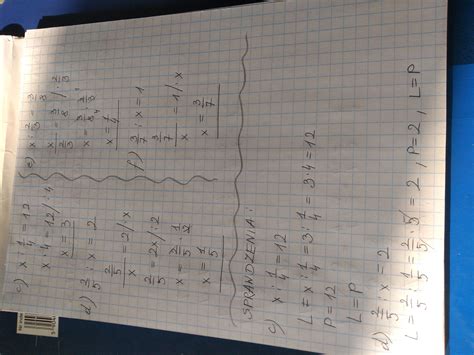 c) x : 1/4 = 12
x · 4 = 12 /: 4
x = 3
d) 2/5 : x = 2
2/5 / x = 2 /· x
2/5 = 2x /: 2
x = 2/5 · 1/2
x = 1/5
e) x : 2/3 = 3/8
x / 2/3 = 3/8 /· 2/3
x = 3/8 · 2/3
x = 1/4
f) 3/7 : x = 1
3/7 / x = 1 /· x
x = 3/7
SPRAWDZENIA:
c) x : 1/4 = 12
L = x : 1/4 = 3 : 1/4 = 3 · 4 = 12
P = 12
L = P
d) 2/5 : x = 2
L = 2/5 : 1/5 = 2/5 · 5 = 2, P = 2, L = P